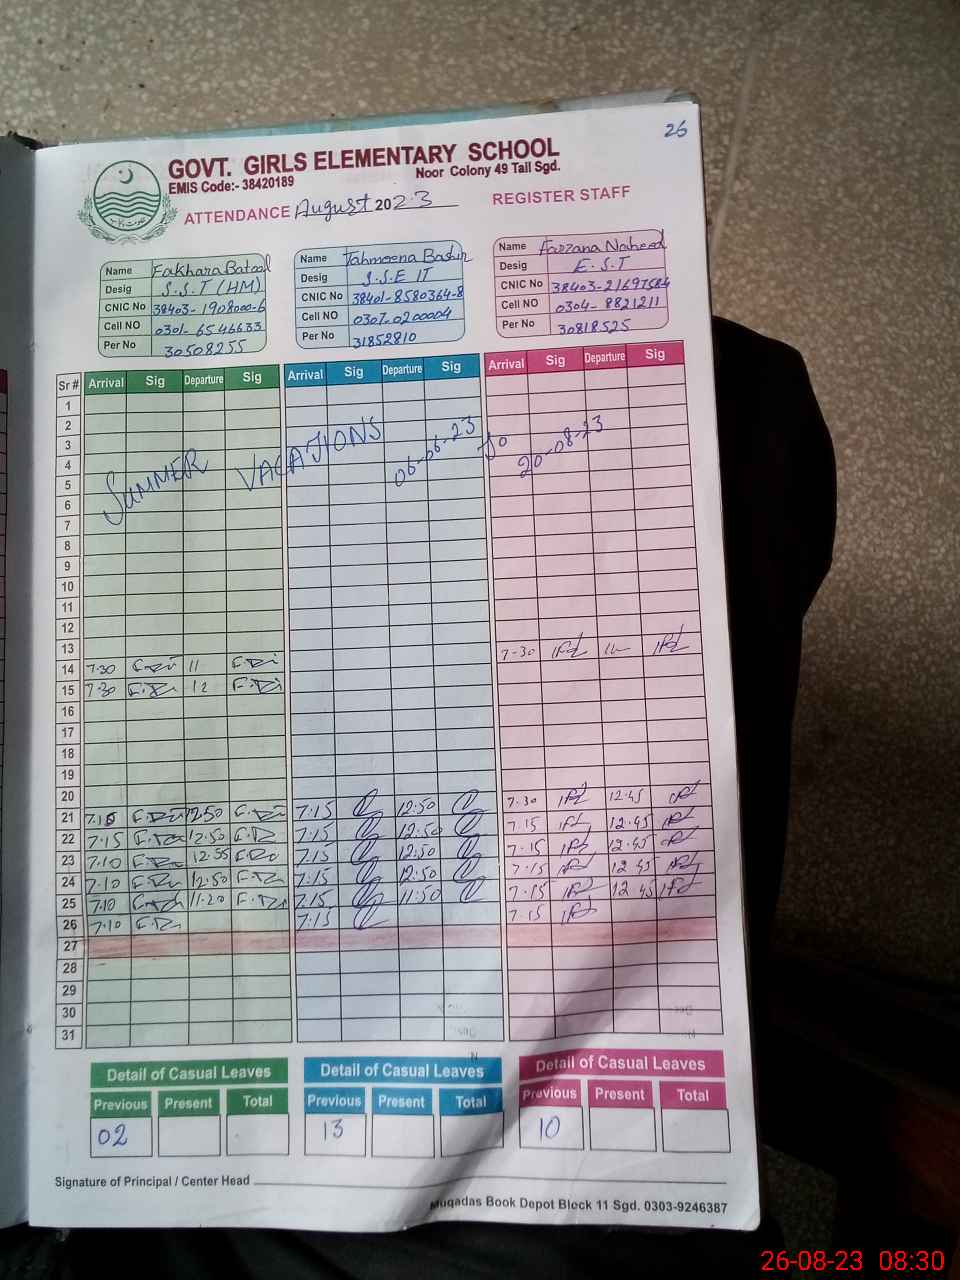 26
GOVT. GIRLS ELEMENTARY SCHOOL
EMIS Code:- 38420189 Noor Colony 49 Tail Sgd.
ATTENDANCE August 2023 REGISTER STAFF
Name Fakhara Batool
Desig S.S.T (HM)
CNIC No 38403-1908000-6
Cell NO 0301-6546633
Per No 30508255
Name Tahmeena Bashir
Desig S.S.E IT
CNIC No 38401-8580364-8
Cell NO 0307-0200004
Per No 31852810
Name Farzana Naheed
Desig E.S.T
CNIC No 38403-2169758
Cell NO 0304-8821211
Per No 30818525
Sr # Arrival Sig Departure Sig Arrival Sig Departure Sig Arrival Sig Departure Sig
1
2
3
4
5
SUMMER VACATIONS 06-06-23 To 20-08-23
6
7
8
9
10
11
12
13 7-30
14 7.30 11
15 7.30 12
16
17
18
19
20 7-30 12.45
21 7.15 12.50 7.15 12:50 7.15 12.45
22 7.15 12.50 7.15 12:50 7.15 12.45
23 7.10 12.55 7.15 12:50 7.15 12.45
24 7.10 12.50 7.15 12:50 7.15 12.45
25 7.10 11.20 7.15 11:50 7.15
26 7.10 7.15
27
28
29
30
31
Detail of Casual Leaves Detail of Casual Leaves Detail of Casual Leaves
Previous Present Total Previous Present Total Previous Present Total
02 13 10
Signature of Principal / Center Head
Muqadas Book Depot Block 11 Sgd. 0303-9246387
26-08-23 08:30